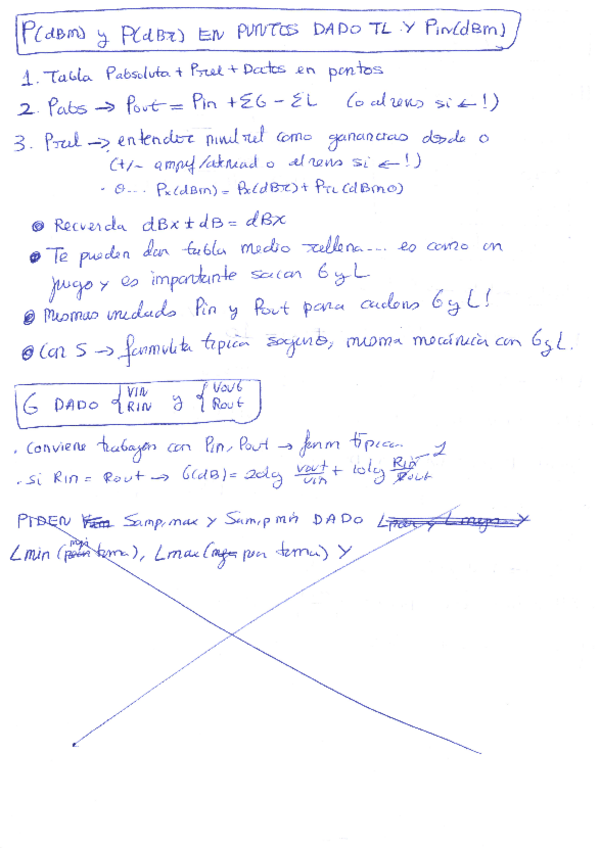 P(dBm) y P(dBr) EN PUNTOS DADO TL Y Pin(dBm)
1. Tabla Pabsoluta + Prel + Datos en puntos
2. Pabs → Pout = Pin + ΣG - ΣL (o al revés si ← !)
3. Prel → entender nivel rel como ganancias desde 0
(+/- ampf/atenuad o al revés si ← !)
· O... Px(dBm) = Px(dBr) + PTL(dBm0)
Recuerda dBx ± dB = dBx
Te pueden dar tabla medio rellena... es como un
juego y es importante sacar G y L
Mismas unidades Pin y Pout para cadena G y L!
Con S → formulita típica , misma mecánica con G y L.
G DADO { VIN RIN y { Vout Rout
· Conviene trabajar con Pin, Pout → form típica.
· Si RIN = Rout → G(dB) = 20lg Vout/Vin + 10lg Rin/Rout 1
PIDEN Samp,max y Samp,min DADO Y
Lmin (mejor tema), Lmax ( peor tema) Y